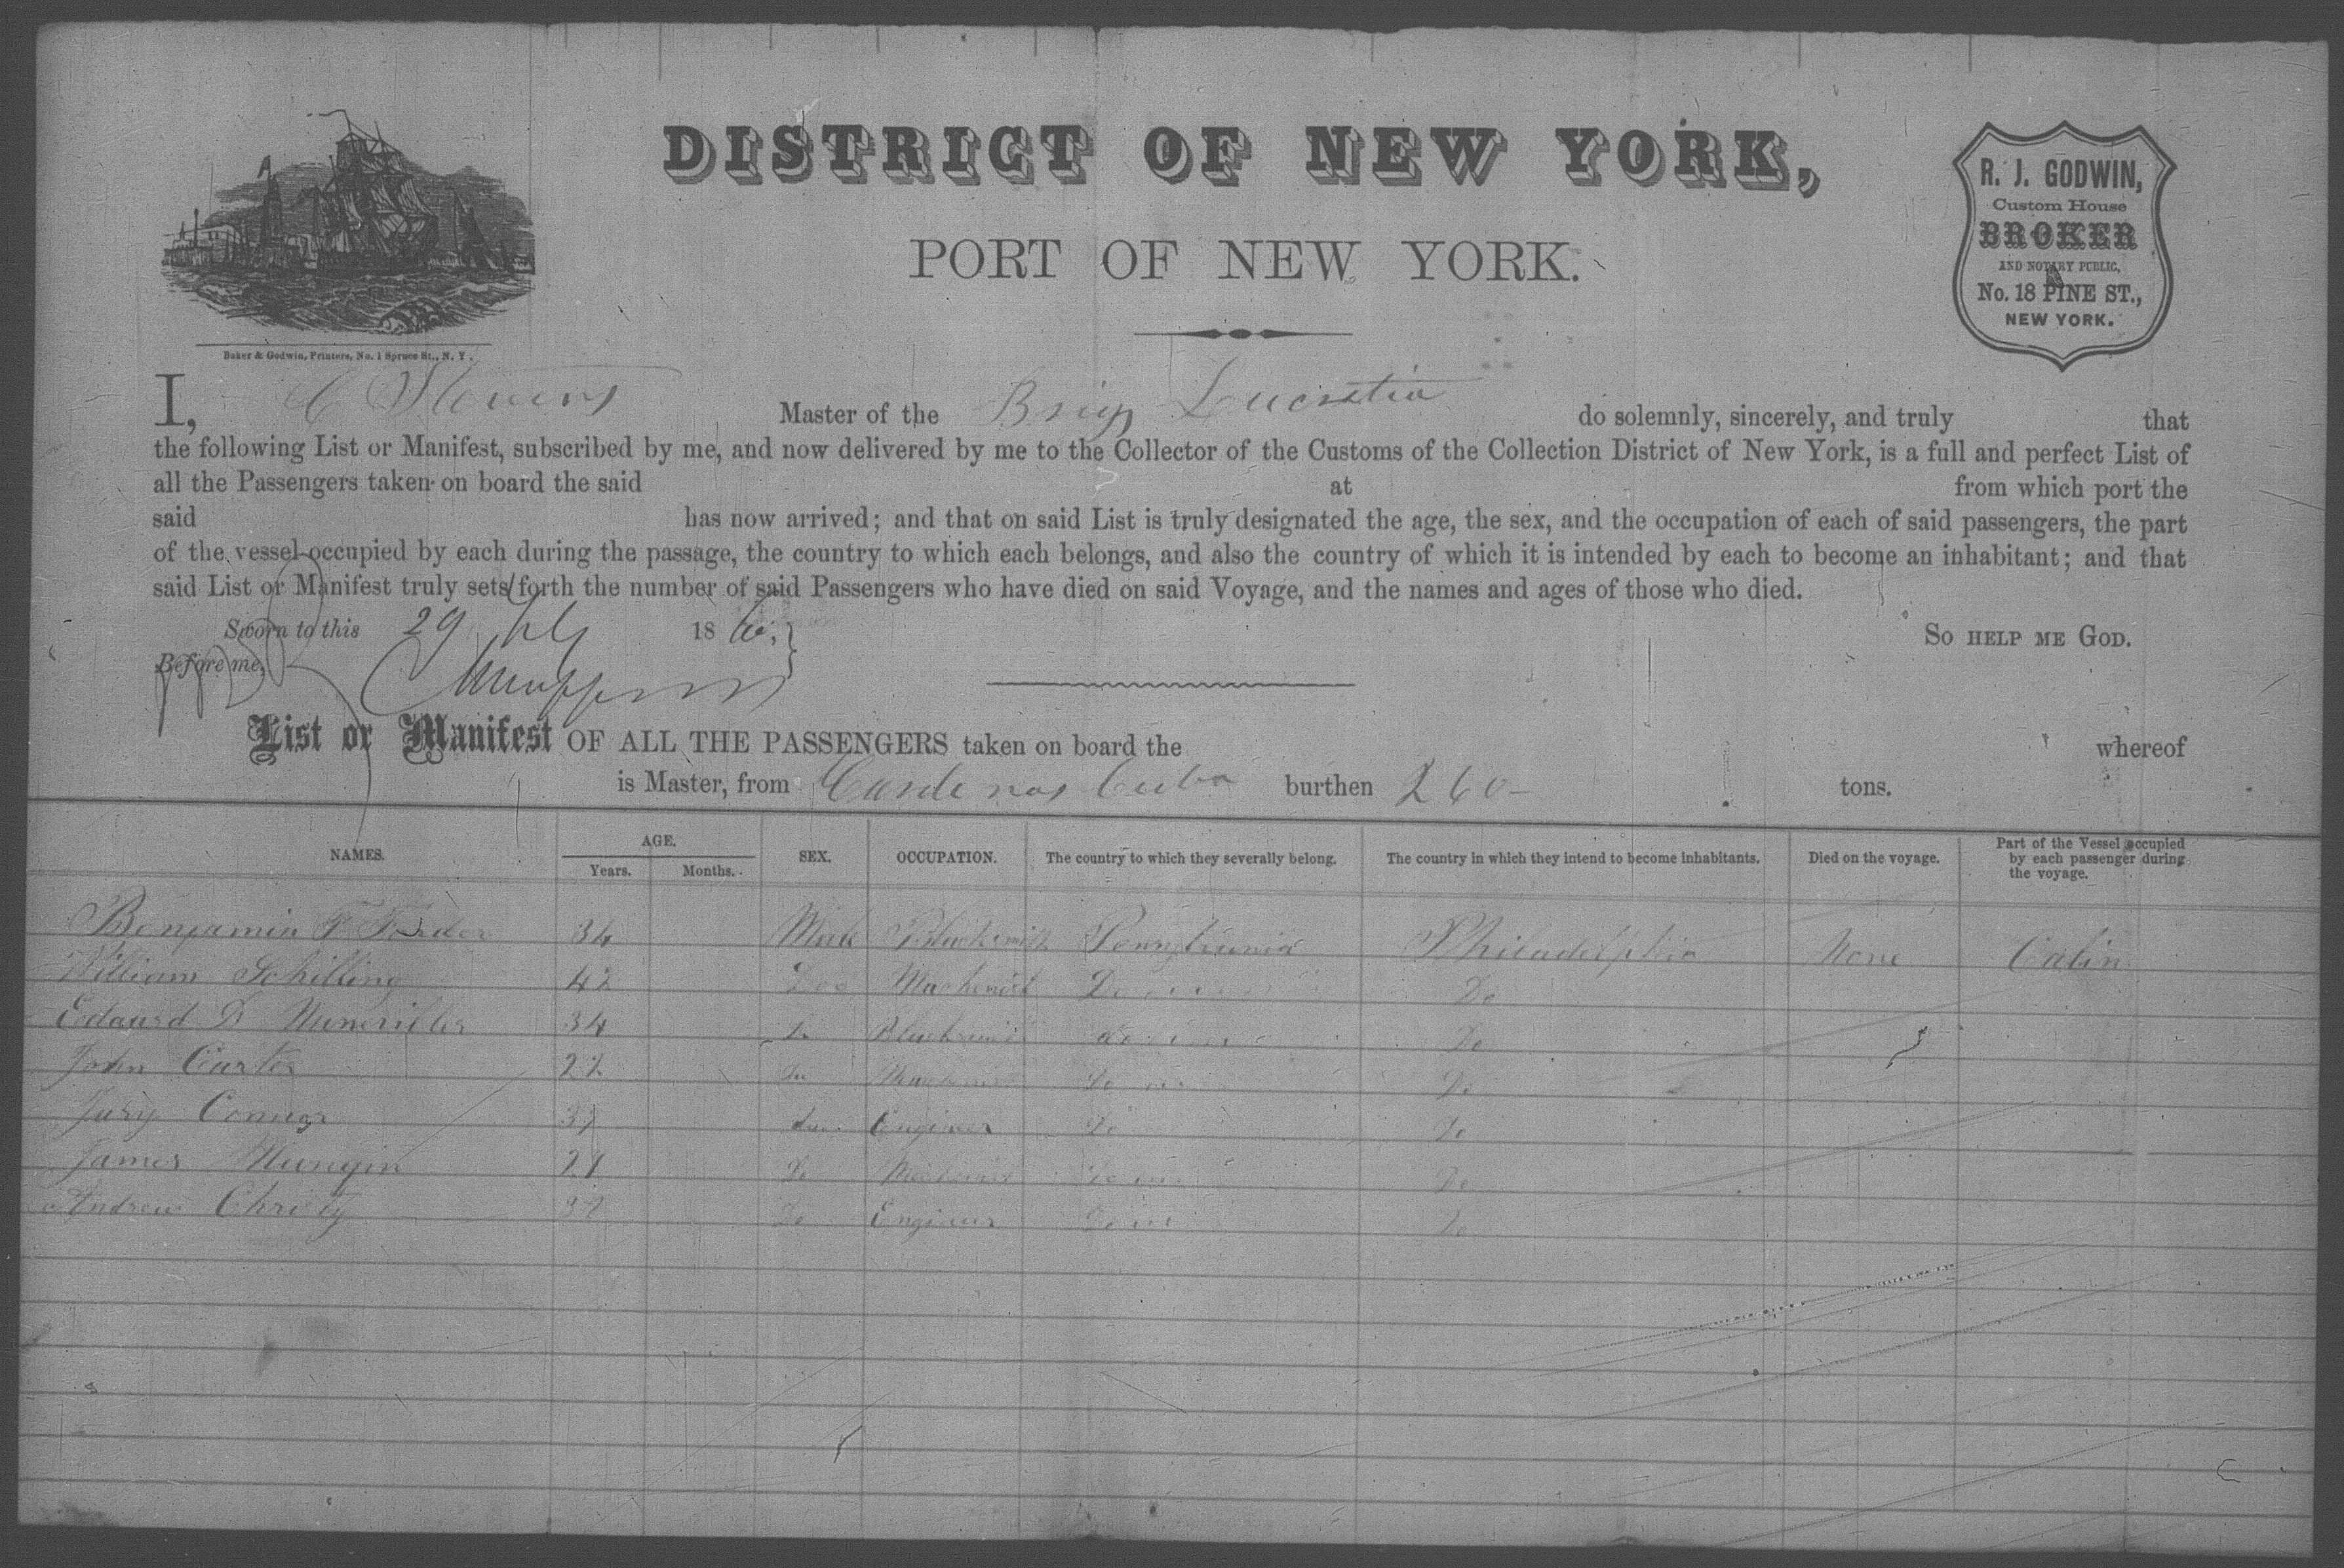 DISTRICT OF NEW YORK,
PORT OF NEW YORK.
R. J. GODWIN,
Custom House
BROKER
AND NOTARY PUBLIC,
No. 18 PINE ST.,
NEW YORK.
Baker & Godwin, Printers, No. 1 Spruce St., N. Y.
I, C Stevens Master of the Brig Lucretia do solemnly, sincerely, and truly that
the following List or Manifest, subscribed by me, and now delivered by me to the Collector of the Customs of the Collection District of New York, is a full and perfect List of
all the Passengers taken on board the said at from which port the
said has now arrived; and that on said List is truly designated the age, the sex, and the occupation of each of said passengers, the part
of the vessel occupied by each during the passage, the country to which each belongs, and also the country of which it is intended by each to become an inhabitant; and that
said List or Manifest truly sets forth the number of said Passengers who have died on said Voyage, and the names and ages of those who died.
Sworn to this 29 18 So HELP ME GOD.
Before me,
List or Manifest OF ALL THE PASSENGERS taken on board the whereof
is Master, from Cardenas Cuba burthen 260 tons.
NAMES. AGE. Years. Months. SEX. OCCUPATION. The country to which they severally belong. The country in which they intend to become inhabitants. Died on the voyage. Part of the Vessel occupied by each passenger during the voyage.
Benjamin F 34 Male Blacksmith Pennsylvania Philadelphia None Cabin
William Schilling 42 Do Machinist Do Do
Edward D 34 Do Blacksmith do Do
John Carter 22 Do Machinist Do Do
Connor 37 Do Engineer Do Do
James 21 Do Machinist Do Do
Andrew Christy 37 Do Engineer Do Do